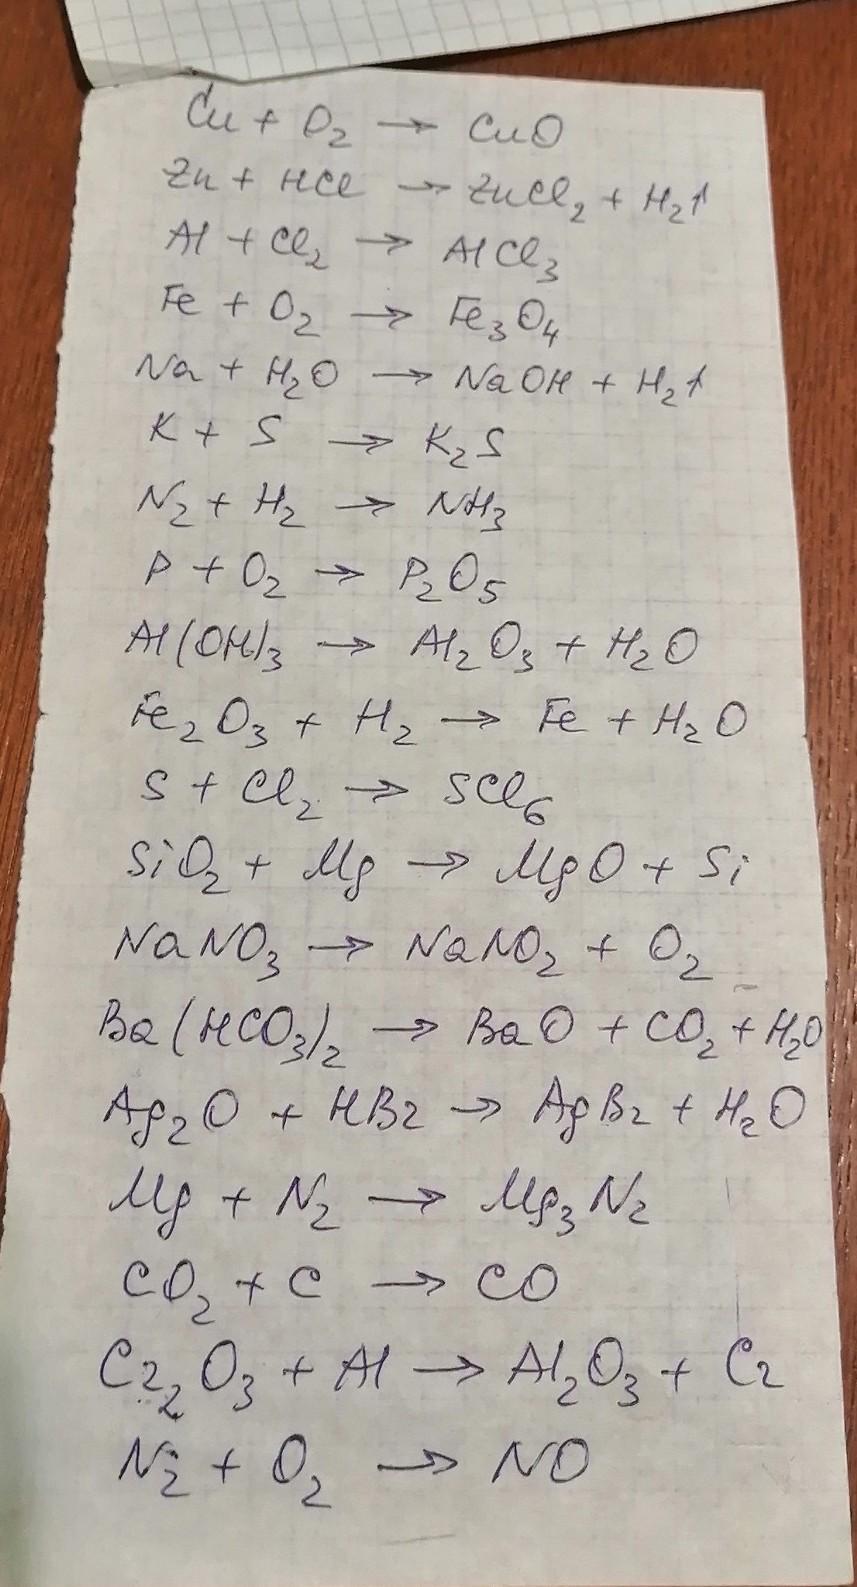 Cu + O₂ → CuO
Zn + HCl → ZnCl₂ + H₂↑
Al + Cl₂ → AlCl₃
Fe + O₂ → Fe₃O₄
Na + H₂O → NaOH + H₂↑
K + S → K₂S
N₂ + H₂ → NH₃
P + O₂ → P₂O₅
Al(OH)₃ → Al₂O₃ + H₂O
Fe₂O₃ + H₂ → Fe + H₂O
S + Cl₂ → SCl₆
SiO₂ + Mg → MgO + Si
NaNO₃ → NaNO₂ + O₂
Ba(HCO₃)₂ → BaO + CO₂ + H₂O
Ag₂O + HBr → AgBr + H₂O
Mg + N₂ → Mg₃N₂
CO₂ + C → CO
Cr₂O₃ + Al → Al₂O₃ + Cr
N₂ + O₂ → NO